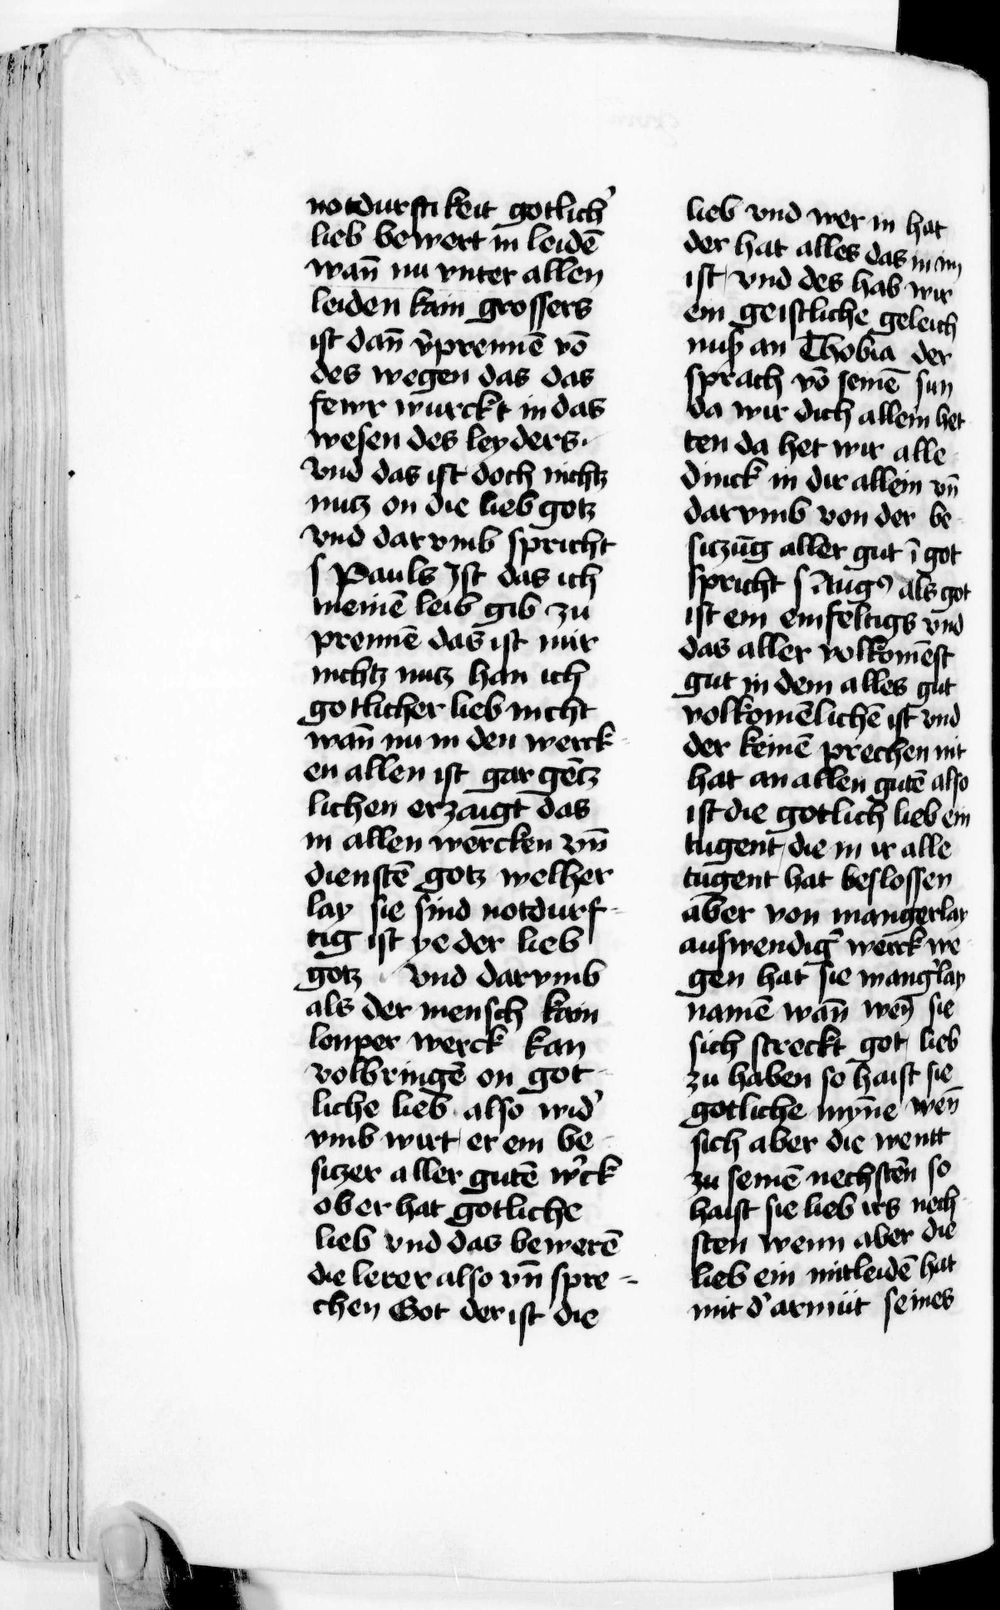 notdurftikeit gotlich᾽
lieb bewert in leidē
wan̄ nu vnter allen
leiden kain grossers
ist dan̄ v̓prennē vō
des wegen das das
fewr wurckt in das
wesen des leyders.
vnd das ist doch nichtz
nutz on die lieb gotz
vnd darvmb spricht
s Pauls Ist das ich
meinē leib gib zu
prennē das ist mir
nichtz nutz han ich
gotlicher lieb nicht
wan̄ nu in den werck-
en allen ist gar gētz
lichen erzaigt das
in allen wercken vn̄
dienstē gotz welher
lay sie sind notdurf-
tig ist yeder lieb
gotz vnd darvmb
als der mensch kain
louper werck kan
volbringē on got-
liche lieb. also wid᾽
vmb wirt er ein be-
sitzer aller gutē w᾽ck
ober hat gotliche
lieb vnd das bewerē
die lerer also vn̄ spre-
chen Got der ist die
lieb vnd wer in hat
der hat alles das in im
ist vnd des hab wir
ein geistliche geleich
nuß an Thobia der
sprach vō seinē sun
da wir dich allein het
ten da het wir alle
dinck in dir allein vn̄
darvmb von der be-
sitzūg aller gut ī got
spricht s Augꝰ als got
ist ein einfeltigs vnd
das aller volkomēst
gut in dem alles gut
volkomēlichē ist vnd
der keinē prechen nit
hat an allen gutē also
ist die gotlich lieb ein
tugent die in ir alle
tugent hat beslossen
aber von mangerlay
auswendig᾽ werck we-
gen hat sie mang᾽lay
namē wan̄ wen̄ sie
sich streckt got lieb
zu haben so haist sie
gotliche myn̄e wen̄
sich aber die wentt
zu seinē nechstēn so
haist sie lieb irs nech-
sten wenn aber die
lieb ein mitleidē hat
mit d᾽ armüt seines